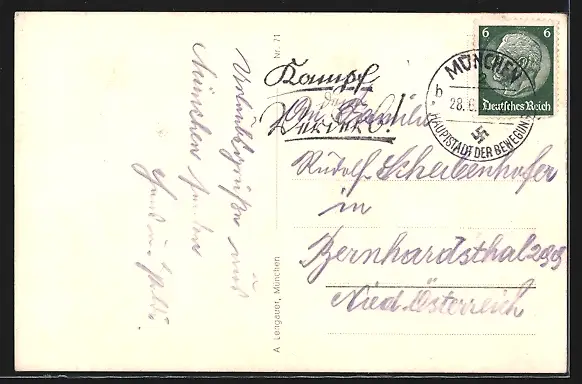 Urlaubsgrüße aus
München senden
Nr. 71
A. Lengauer, München
6 6
Deutsches Reich
MÜNCHEN
2
b
28.6
HAUPTSTADT DER BEWEGUNG
Kampf
dem
Verderb!
An Familie
Rudolf Scheibenhofer
in
Bernhardsthal 299
Nied. Österreich